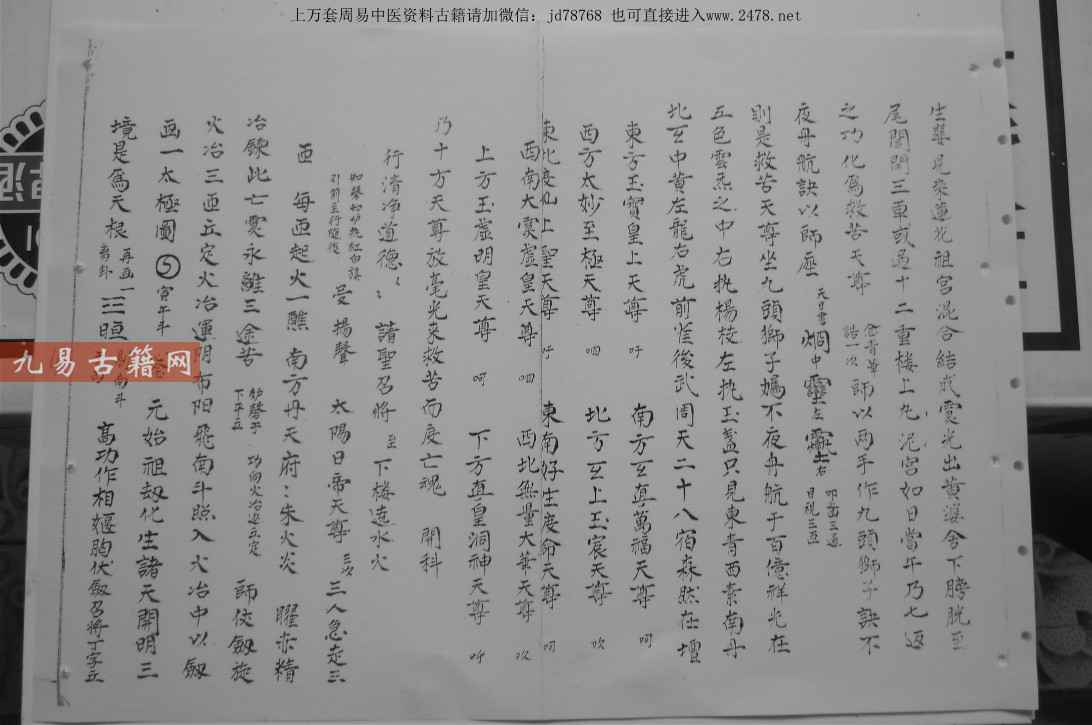 上万套周易中医资料古籍请加微信：jd78768 也可直接进入www.2478.net
生䔢見眾蓮花祖宮混合結成靈光出黃瀑舍下膀胱至
尾閭閞三車或過十二重樓上九泥宮如日當午乃七返
之功化為救苦天尊 念青華誥一次 師以兩手作九頭獅子訣不
夜舟航訣以師座 天月書 烱中靈左靈右 叩齒三通 目視三五
則是救苦天尊坐九頭獅子嫣不夜舟航于百億祥光在
五色雲炁之中右执楊枝左执玉盞只見東青西素南丹
北玄中黃左龍右虎前雀後武周天二十八宿森然在壇
東方玉寶皇上天尊 吁 南方玄真萬福天尊 呵
西方太妙至極天尊 呬 北方玄上玉宸天尊 吹
東北度仙上聖天尊 吁 東南好生度命天尊 呵
西南大靈虛皇天尊 呬 西北無量大華天尊 吹
上方玉虛明皇天尊 呵 下方真皇洞神天尊 吁
乃十方天尊放毫光來救苦而度亡魂 開科
行清净道德〻諸聖召將 至下樓遶水火
旻 揚聲 太陽日帝天尊 三次 三人急走三
面 每面起火一醮 南方丹天府：朱火炎 曜赤精
冶鍊此亡靈永離三途苦 師伏劍旋
火冶三面立定火冶運明布陽飛南斗照入火冶中以劍
画一太極圖 寅午斗 元始祖劫化生諸天開明三
境是為天根 再画一离卦 三晅 高功作相媪胸伏劔召將丁字立
九易古籍网